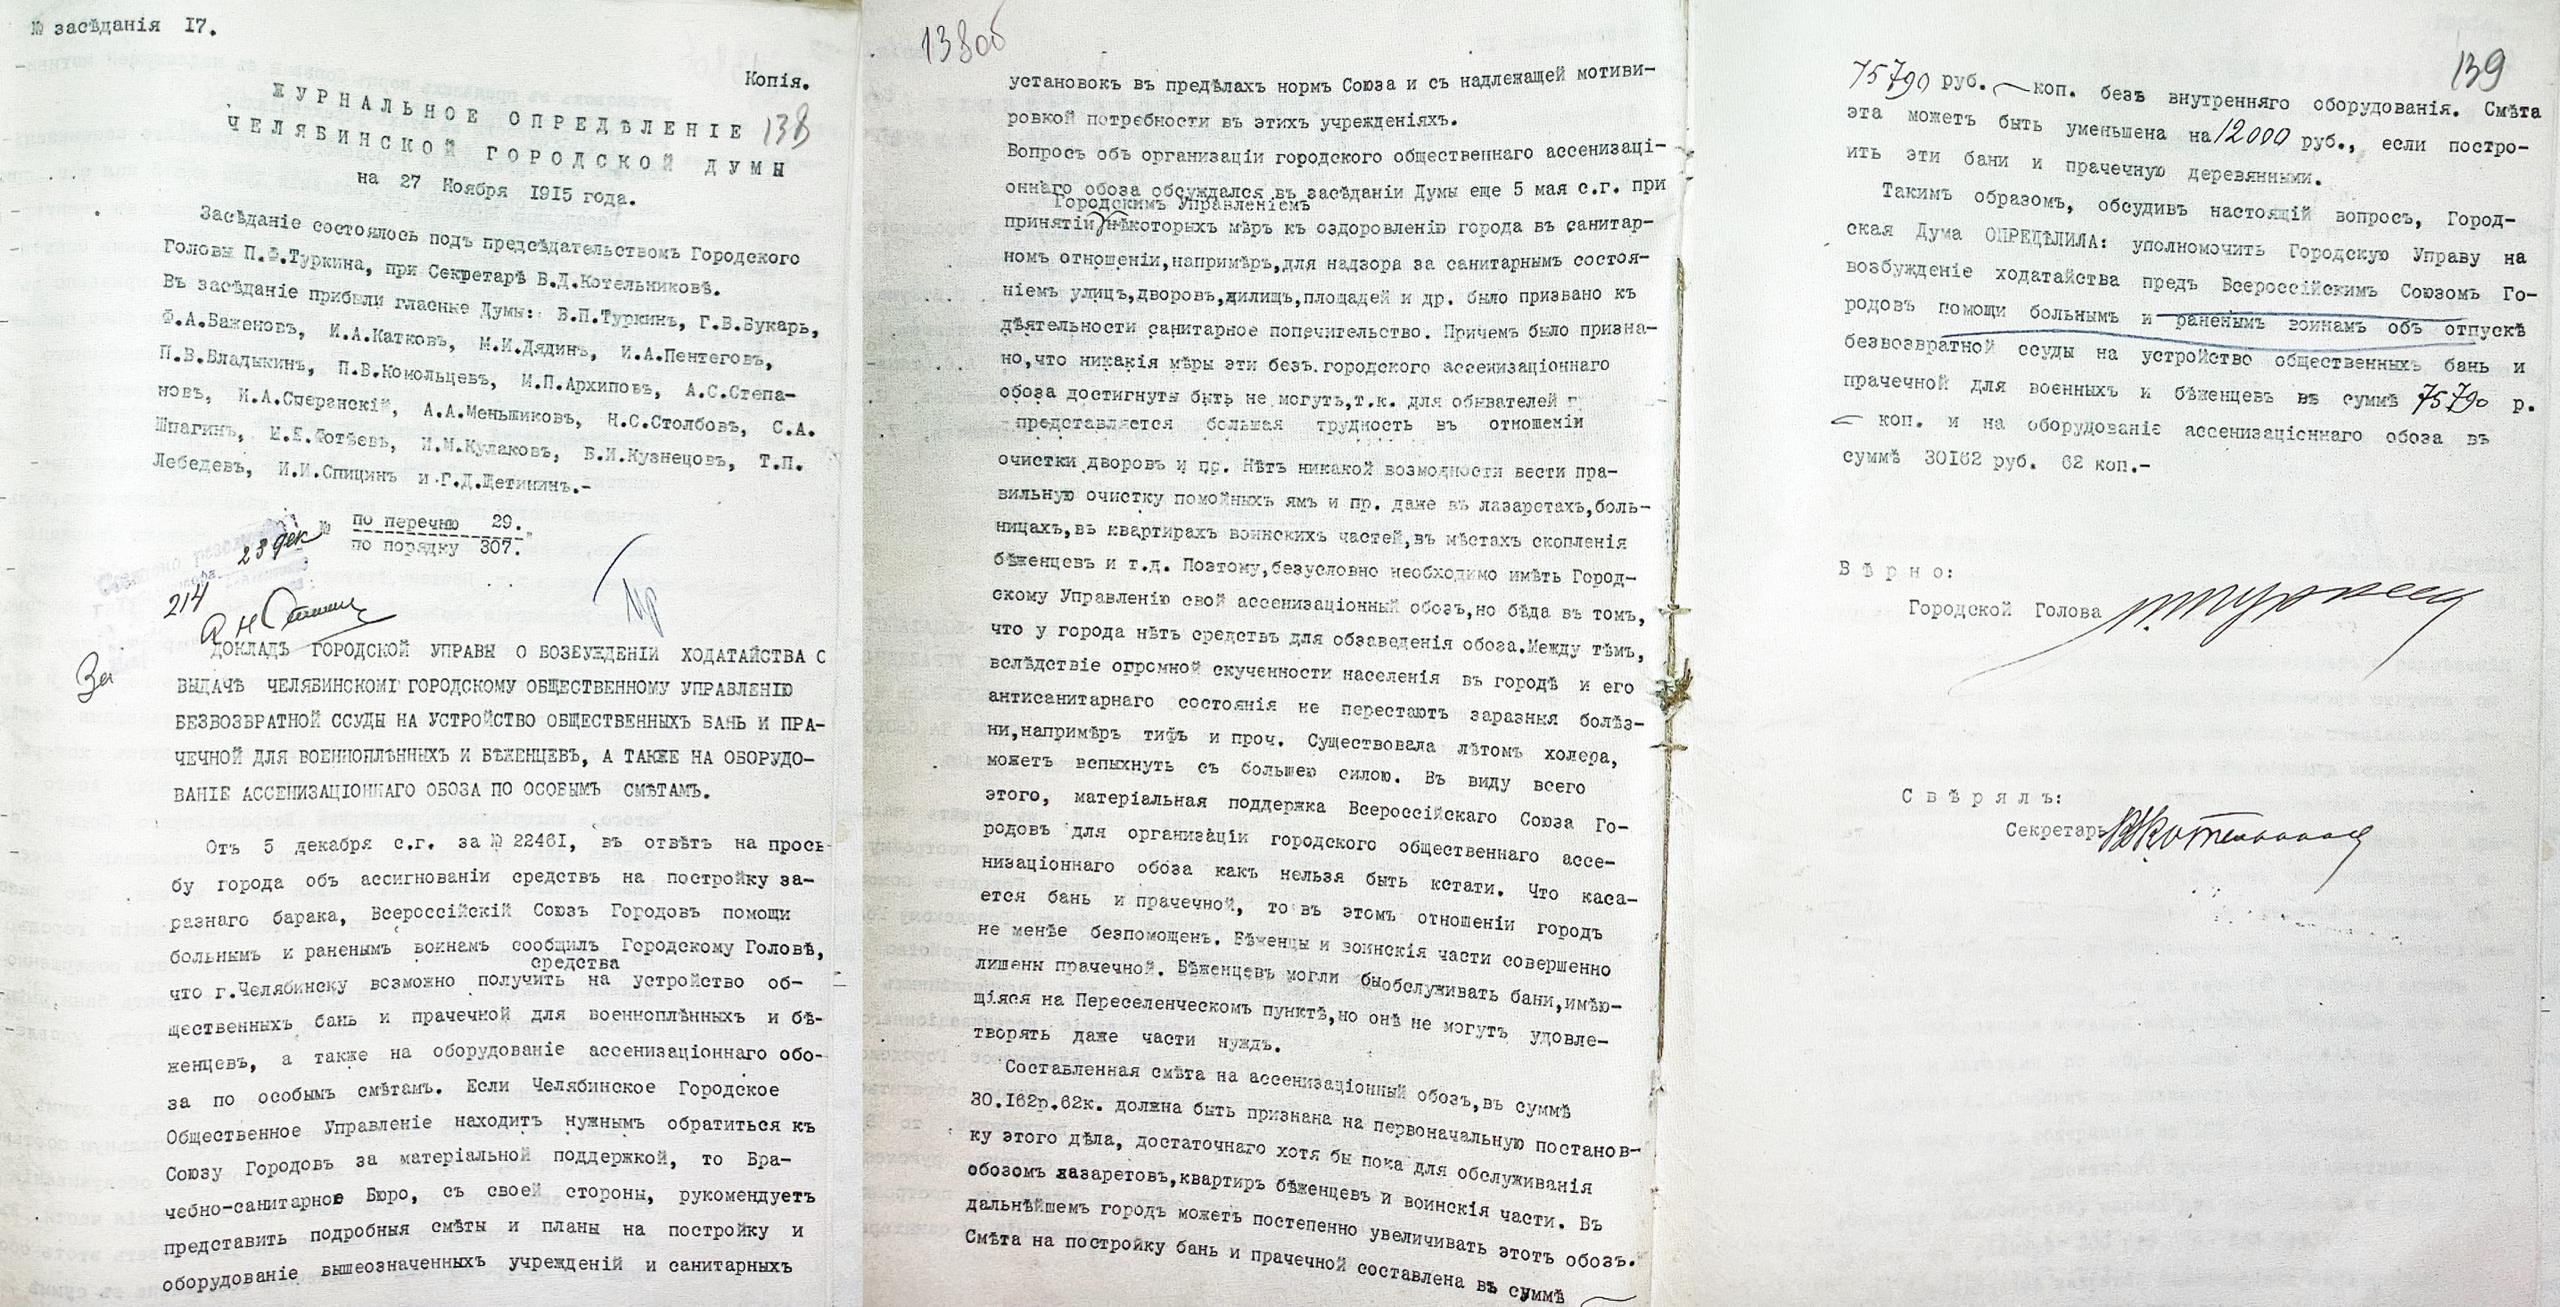 № засѣданія 17.
Копія.
ЖУРНАЛЬНОЕ ОПРЕДѢЛЕНІЕ 138
ЧЕЛЯБИНСКОЙ ГОРОДСКОЙ ДУМЫ
на 27 Ноября 1915 года.
Засѣданіе состоялось подъ предсѣдательствомъ Городского
Головы П.Ф.Туркина, при Секретарѣ В.Д.Котельниковѣ.
Въ засѣданіе прибыли гласные Думы: В.П.Туркинъ, Г.В.Букарь,
Ф.А.Баженовъ, И.А.Катковъ, М.И.Дядинъ, И.А.Пентеговъ,
П.В.Владыкинъ, П.В.Комольцевъ, М.П.Архиповъ, А.С.Степа-
новъ, И.А.Сперанскій, А.А.Меньшиковъ, Н.С.Столбовъ, С.А.
Шпагинъ, И.Е.Фотѣевъ, И.М.Кулаковъ, Б.И.Кузнецовъ, Т.П.
Лебедевъ, И.И.Спицинъ и Г.Д.Щетининъ.-
№ по перечню 29.
по порядку 307.
23 дек
214
За
ДОКЛАДЪ ГОРОДСКОЙ УПРАВЫ О ВОЗБУЖДЕНІИ ХОДАТАЙСТВА О
ВЫДАЧѢ ЧЕЛЯБИНСКОМУ ГОРОДСКОМУ ОБЩЕСТВЕННОМУ УПРАВЛЕНІЮ
БЕЗВОЗВРАТНОЙ ССУДЫ НА УСТРОЙСТВО ОБЩЕСТВЕННЫХЪ БАНЬ И ПРА-
ЧЕЧНОЙ ДЛЯ ВОЕННОПЛѢННЫХЪ И БѢЖЕНЦЕВЪ, А ТАКЖЕ НА ОБОРУДО-
ВАНІЕ АССЕНИЗАЦІОННАГО ОБОЗА ПО ОСОБЫМЪ СМѢТАМЪ.
Отъ 5 декабря с.г. за № 22461, въ отвѣтъ на прось-
бу города объ ассигнованіи средствъ на постройку за-
разнаго барака, Всероссійскій Союзъ Городовъ помощи
больнымъ и раненымъ воинамъ сообщилъ Городскому Головѣ,
средства
что г.Челябинску возможно получить на устройство об-
щественныхъ бань и прачечной для военноплѣнныхъ и бѣ-
женцевъ, а также на оборудованіе ассенизаціоннаго обо-
за по особымъ смѣтамъ. Если Челябинское Городское
Общественное Управленіе находитъ нужнымъ обратиться къ
Союзу Городовъ за матеріальной поддержкой, то Вра-
чебно-санитарное Бюро, съ своей стороны, рукомендуетъ
представить подробныя смѣты и планы на постройку и
оборудованіе вышеозначенныхъ учрежденій и санитарныхъ
138об
установокъ въ предѣлахъ нормъ Союза и съ надлежащей мотиви-
ровкой потребности въ этихъ учрежденіяхъ.
Вопросъ объ организаціи городского общественнаго ассенизаці-
оннаго обоза обсуждался въ засѣданіи Думы еще 5 мая с.г. при
Городскимъ Управленіемъ
принятіи нѣкоторыхъ мѣръ къ оздоровленію города въ санитар-
номъ отношеніи,напримѣръ,для надзора за санитарнымъ состоя-
ніемъ улицъ,дворовъ,жилищъ,площадей и др. было призвано къ
дѣятельности санитарное попечительство. Причемъ было призна-
но,что никакія мѣры эти безъ городского ассенизаціоннаго
обоза достигнуты быть не могутъ,т.к. для обывателей г
представляется большая трудность въ отношеніи
очистки дворовъ и пр. Нѣтъ никакой возможности вести пра-
вильную очистку помойныхъ ямъ и пр. даже въ лазаретахъ,боль-
ницахъ,въ квартирахъ воинскихъ частей,въ мѣстахъ скопленія
бѣженцевъ и т.д. Поэтому,безусловно необходимо имѣть Город-
скому Управленію свой ассенизаціонный обозъ,но бѣда въ томъ,
что у города нѣтъ средствъ для обзаведенія обоза.Между тѣмъ,
вслѣдствіе огромной скученности населенія въ городѣ и его
антисанитарнаго состоянія не перестаютъ заразныя болѣз-
ни,напримѣръ тифъ и проч. Существовала лѣтомъ холера,
можетъ вспыхнуть съ большею силою. Въ виду всего
этого, матеріальная поддержка Всероссійскаго Союза Го-
родовъ для организаціи городского общественнаго ассе-
низаціоннаго обоза какъ нельзя быть кстати. Что каса-
ется бань и прачечной, то въ этомъ отношеніи городъ
не менѣе безпомощенъ. Бѣженцы и воинскія части совершенно
лишены прачечной. Бѣженцевъ могли быобслуживать бани,имѣю-
щіяся на Переселенческомъ пунктѣ,но онѣ не могутъ удовле-
творять даже части нуждъ.
Составленная смѣта на ассенизаціонный обозъ,въ суммѣ
30.162р.62к. должна быть признана на первоначальную постанов-
ку этого дѣла, достаточнаго хотя бы пока для обслуживанія
обозомъ лазаретовъ,квартиръ бѣженцевъ и воинскія части. Въ
дальнѣйшемъ городъ можетъ постепенно увеличивать этотъ обозъ.
Смѣта на постройку бань и прачечной составлена въ суммѣ
139
75790 руб. — коп. безъ внутренняго оборудованія. Смѣта
эта можетъ быть уменьшена на 12000 руб., если постро-
ить эти бани и прачечную деревянными.
Такимъ образомъ, обсудивъ настоящій вопросъ, Город-
ская Дума ОПРЕДѢЛИЛА: уполномочить Городскую Управу на
возбужденіе ходатайства предъ Всероссійскимъ Союзомъ Го-
родовъ помощи больнымъ и раненымъ воинамъ объ отпускѣ
безвозвратной ссуды на устройство общественныхъ бань и
прачечной для военныхъ и бѣженцевъ въ суммѣ 75790 р.
— коп. и на оборудованіе ассенизаціоннаго обоза въ
суммѣ 30162 руб. 62 коп.-
Вѣрно:
Городской Голова П. Туркин
Свѣрялъ:
Секретарь В Котельников